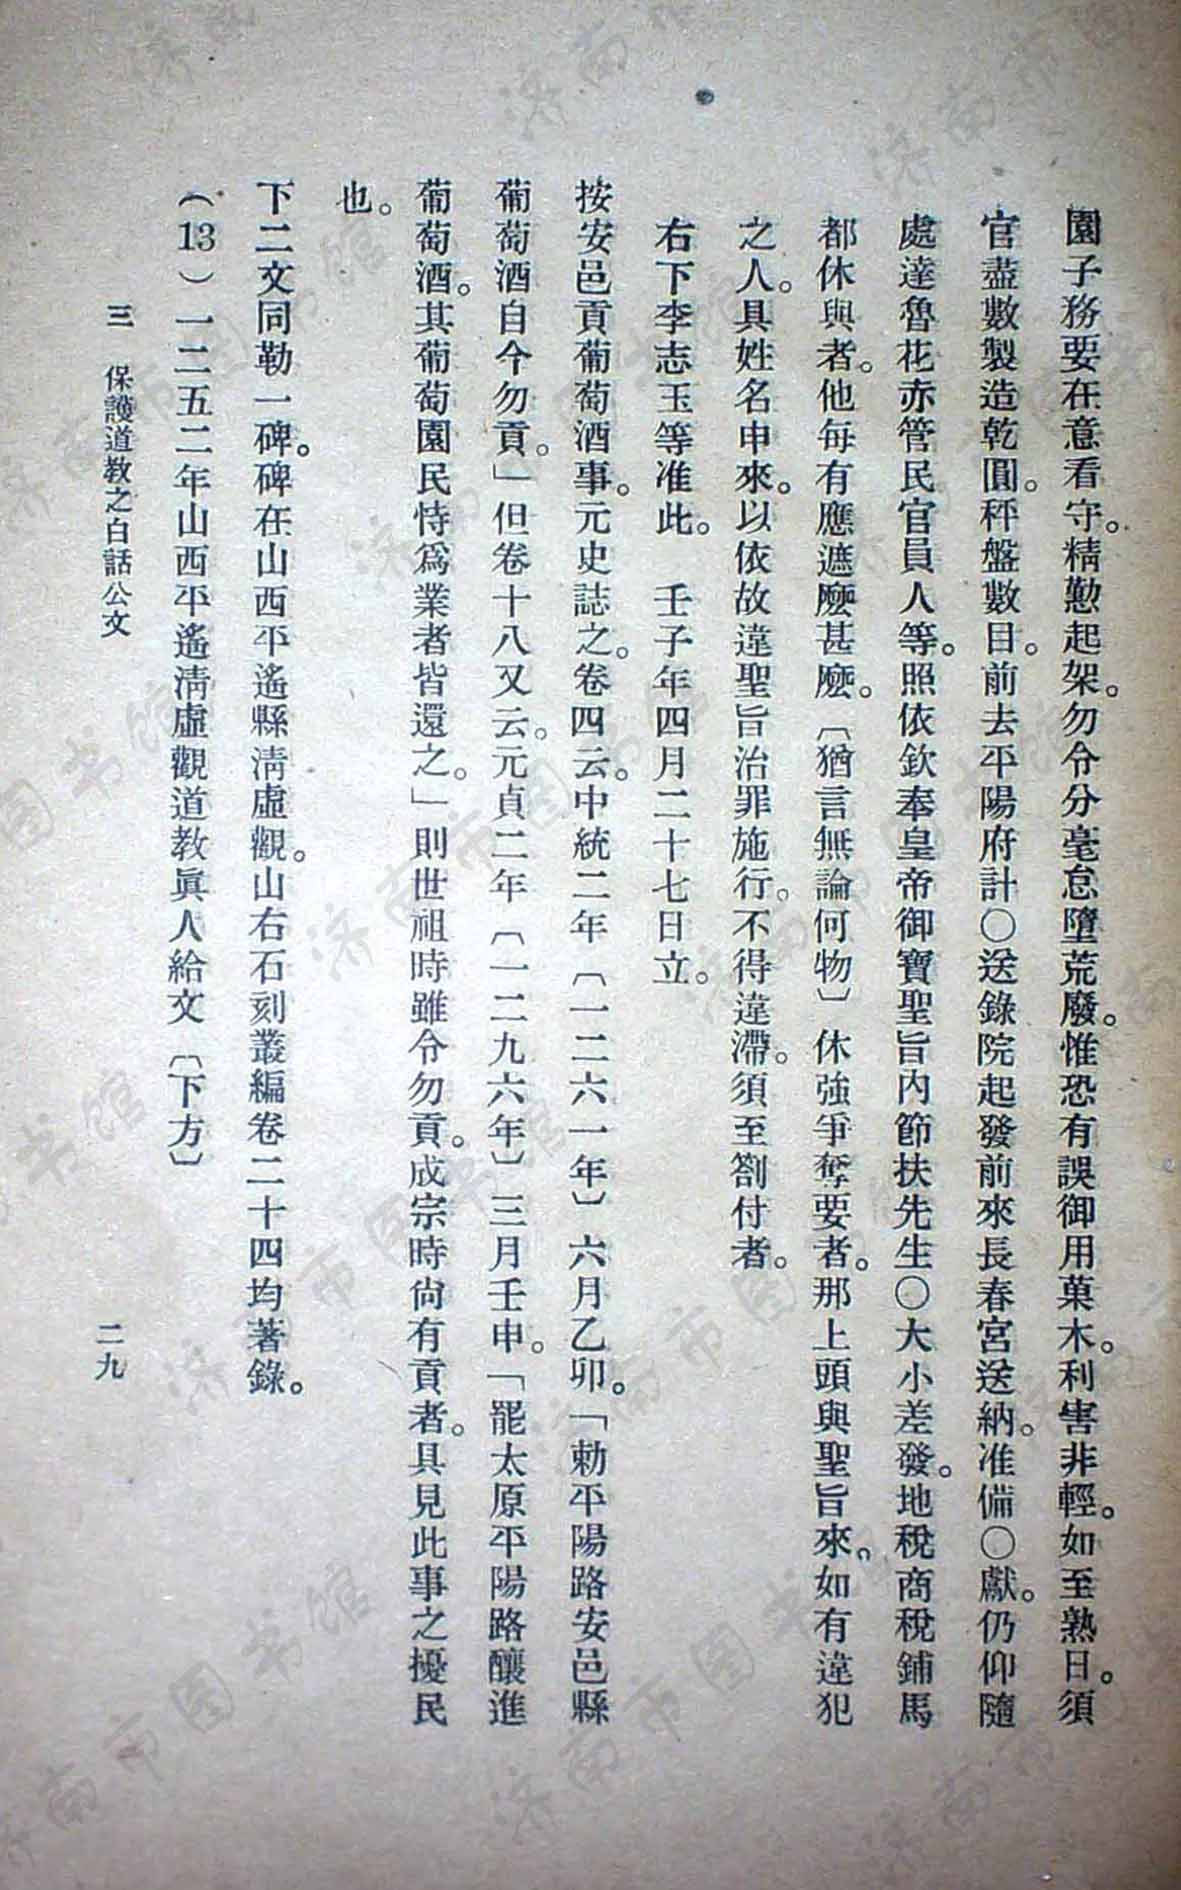 園子務要在意看守。精懃起架。勿令分毫怠墮荒廢。惟恐有誤御用菓木。利害非輕。如至熟日。須
官盡數製造乾圓。秤盤數目。前去平陽府計〇送錄院起發前來長春宮送納。准備〇獻。仍仰隨
處達魯花赤管民官員人等。照依欽奉皇帝御寶聖旨內節扶先生〇大小差發。地稅商稅鋪馬
都休與者。他每有應遮麼甚麼。〔猶言無論何物〕休強爭奪要者。那上頭與聖旨來。如有違犯
之人。具姓名申來。以依故違聖旨治罪施行。不得違滯。須至劄付者。
右下李志玉等准此。　壬子年四月二十七日立。
按安邑貢葡萄酒事。元史誌之。卷四云。中統二年〔一二六一年〕六月乙卯。「勅平陽路安邑縣
葡萄酒自今勿貢。」但卷十八又云。元貞二年〔一二九六年〕三月壬申。「罷太原平陽路釀進
葡萄酒。其葡萄園民恃爲業者皆還之。」則世祖時雖令勿貢。成宗時尙有貢者。具見此事之擾民
也。
下二文同勒一碑。碑在山西平遙縣淸虛觀。山右石刻叢編卷二十四均著錄。
（13）一二五二年山西平遙淸虛觀道教眞人給文〔下方〕
三　保護道教之白話公文
二九
济南市图书馆